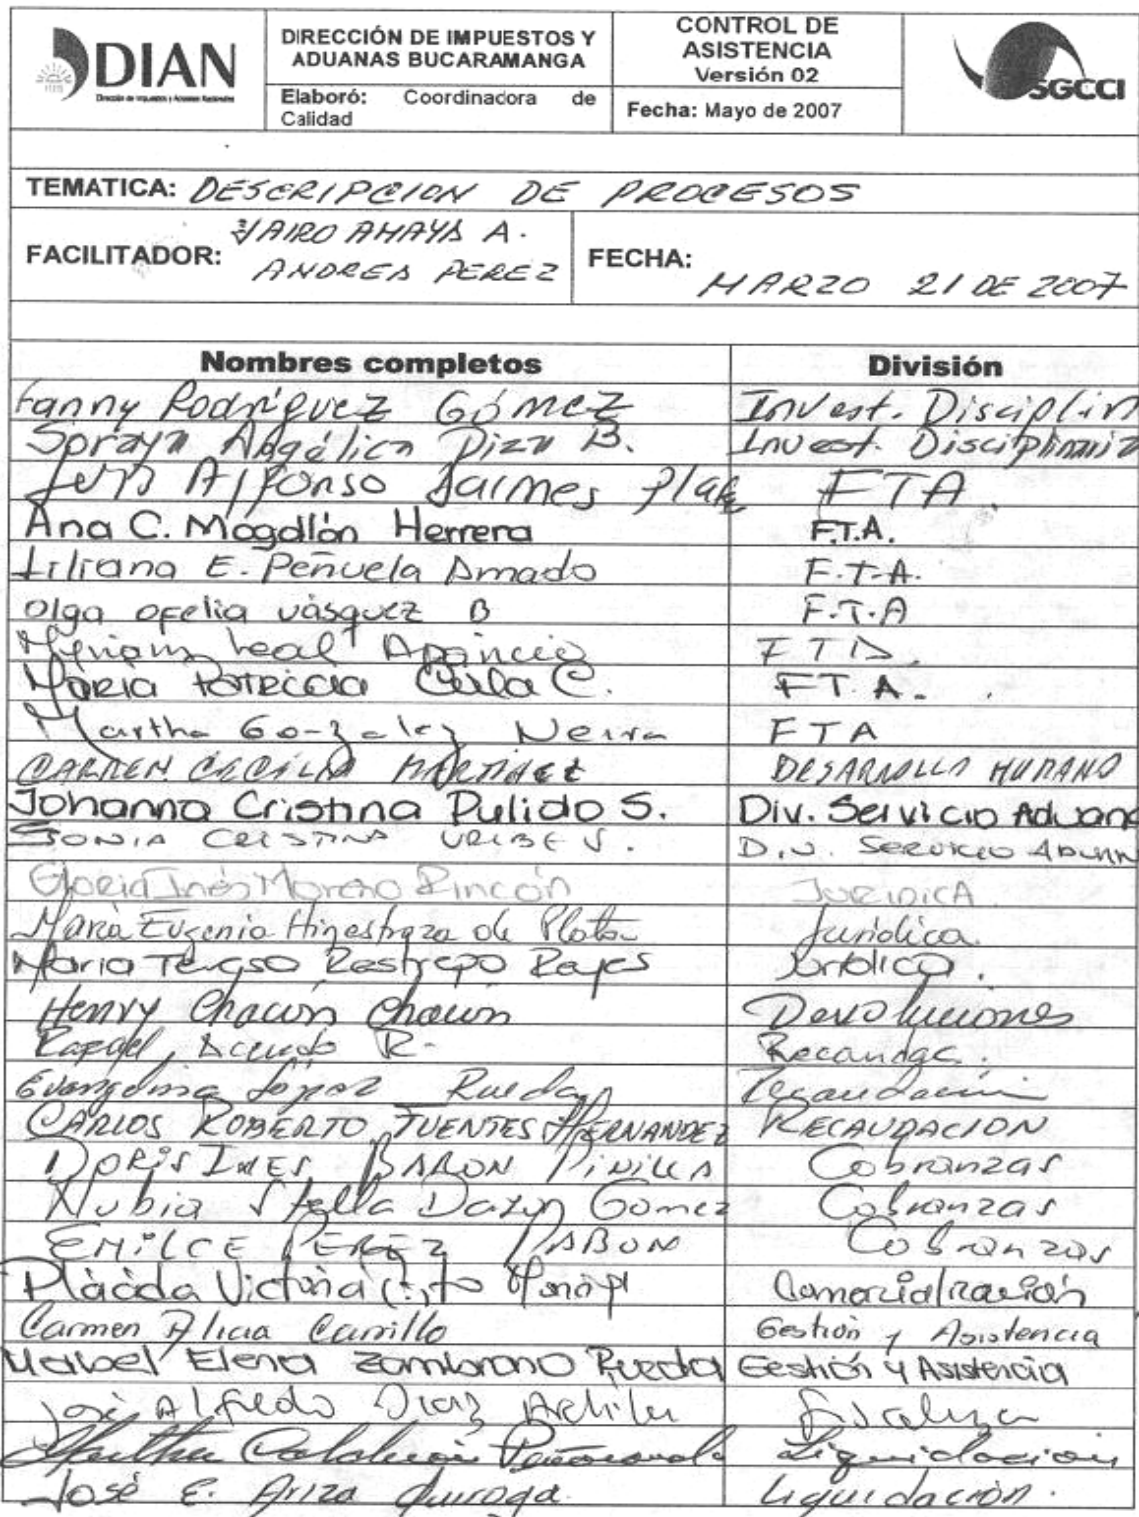 DIAN
Dirección de Impuestos y Aduanas Nacionales
DIRECCIÓN DE IMPUESTOS Y
ADUANAS BUCARAMANGA
Elaboró: Coordinadora de
Calidad
CONTROL DE
ASISTENCIA
Versión 02
Fecha: Mayo de 2007
SGCCI
TEMATICA: DESCRIPCION DE PROCESOS
FACILITADOR: JAIRO AMAYA A.
ANDRES PEREZ
FECHA:
MARZO 21 DE 2007
Nombres completos División
Fanny Rodríguez Gómez Invest. Disciplin
Soraya Angélica B. Invest. Disciplinaria
Luis Alfonso Jaimes FTA
Ana C. Mogollón Herrera F.T.A.
Liliana E. Peñuela Amado F.T.A.
Olga Ofelia Vásquez B F.T.A
Myriam Leal Aparicio FTA
Maria Patricia C. FT.A.
Martha Gonzalez Neira FTA
CARMEN CECILIA MARTINEZ DESARROLLO HUMANO
Johanna Cristina Pulido S. Div. Servicio Aduane
SONIA CRISTINA URIBE V. Div. SERVICIO ADUAN
Gloria Inés Moreno Rincón JURIDICA
María Eugenia Hinestroza de Jurídica.
Maria Teresa Restrepo Jurídica.
Henry Chacón Chacón Devoluciones
Rafael R. Recaudac.
Evangelina López Rueda Recaudación
CARLOS ROBERTO FUENTES HERNANDEZ RECAUDACION
DORIS INES BARON PINILLA Cobranzas
Nubia Stella Daza Gomez Cobranzas
EMILCE PEREZ PABON Cobranzas
Plácida Victoria Comercialización
Carmen Alicia Carrillo Gestión y Asistencia
Elena Zambrano Rueda Gestión y Asistencia
José Alfredo Diaz Ardila
Martha Calderón Liquidación
José E. Ariza Quiroga. Liquidación.